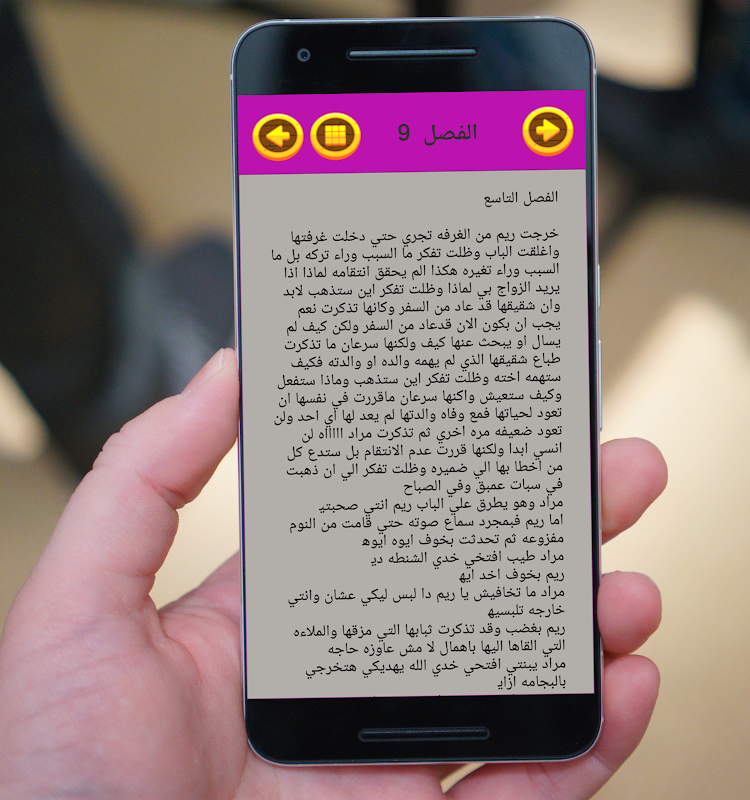 الفصل 9
الفصل التاسع
خرجت ريم من الغرفه تجري حتي دخلت غرفتها
واغلقت الباب وظلت تفكر ما السبب وراء تركه بل ما
السبب وراء تغيره هكذا الم يحقق انتقامه لماذا اذا
يريد الزواج بي لماذا وظلت تفكر اين ستذهب لابد
وان شقيقها قد عاد من السفر وكانها تذكرت نعم
يجب ان يكون الان قدعاد من السفر ولكن كيف لم
يسال او يبحث عنها كيف ولكنها سرعان ما تذكرت
طباع شقيقها الذي لم يهمه والده او والدته فكيف
ستهمه اخته وظلت تفكر اين ستذهب وماذا ستفعل
وكيف ستعيش واكنها سرعان ماقررت في نفسها ان
تعود لحياتها فمع وفاه والدتها لم يعد لها اي احد ولن
تعود ضعيفه مره اخري ثم تذكرت مراد اااااه لن
انسي ابدا ولكنها قررت عدم الانتقام بل ستدع كل
من اخطا بها الي ضميره وظلت تفكر الي ان ذهبت
في سبات عمبق وفي الصباح
مراد وهو يطرق علي الباب ريم انتي صحبتي
اما ريم فبمجرد سماع صوته حتي قامت من النوم
مفزوعه ثم تحدثت بخوف ايوه ايوه
مراد طيب افتخي خدي الشنطه دي
ريم بخوف اخد ايه
مراد ما تخافيش يا ريم دا لبس ليكي عشان وانتي
خارجه تلبسيه
ريم بغضب وقد تذكرت ثيابها التي مزقها والملاءه
التي القاها اليها باهمال لا مش عاوزه حاجه
مراد يبنتي افتحي خدي الله يهديكي هتخرجي
بالبجامه ازاي